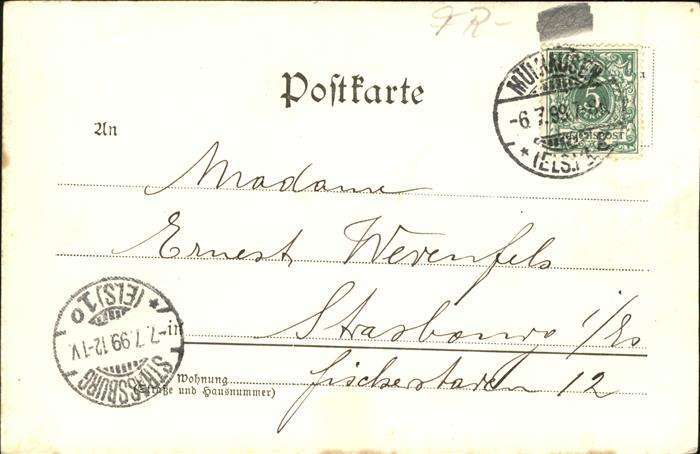 FR-
Postkarte
MÜLHAUSEN
-6.7.99.7-8
(ELS.)
5
REICHSPOST
An
Madame
Ernest Wevenfels
in
Strasbourg i/Els
Wohnung
(Straße und Hausnummer)
fischerstaden 12
* (ELS.) 10
-7.7.99.12-1V.
STRASSBURG